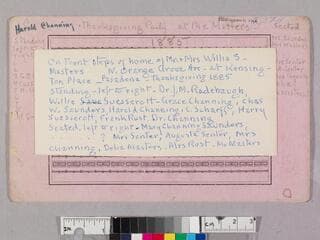 Harold Channing - Thanksgiving Party at the Masters
1885
On Front Steps of home of Mr & Mrs Willis S-
Masters N. Orange Grove Ave - at Kensing-
ton Place Pasadena - Thanksgiving 1885
Standing - left to right - Dr. J.M. Radebaugh
Willis Suesserott - Grace Channing, Chas
J. Saunders, Harold Channing, C. Scharff, Harry
Suesserott, Frank Rust. Dr. Channing
Seated, left to right - Mary Channing Saunders,
? Mrs Senter, August Senter, Mrs
Channing, Delia Masters. Mrs Rust. Mr Masters